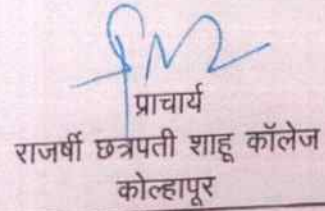 प्राचार्य
राजर्षी छत्रपती शाहू कॉलेज
कोल्हापूर